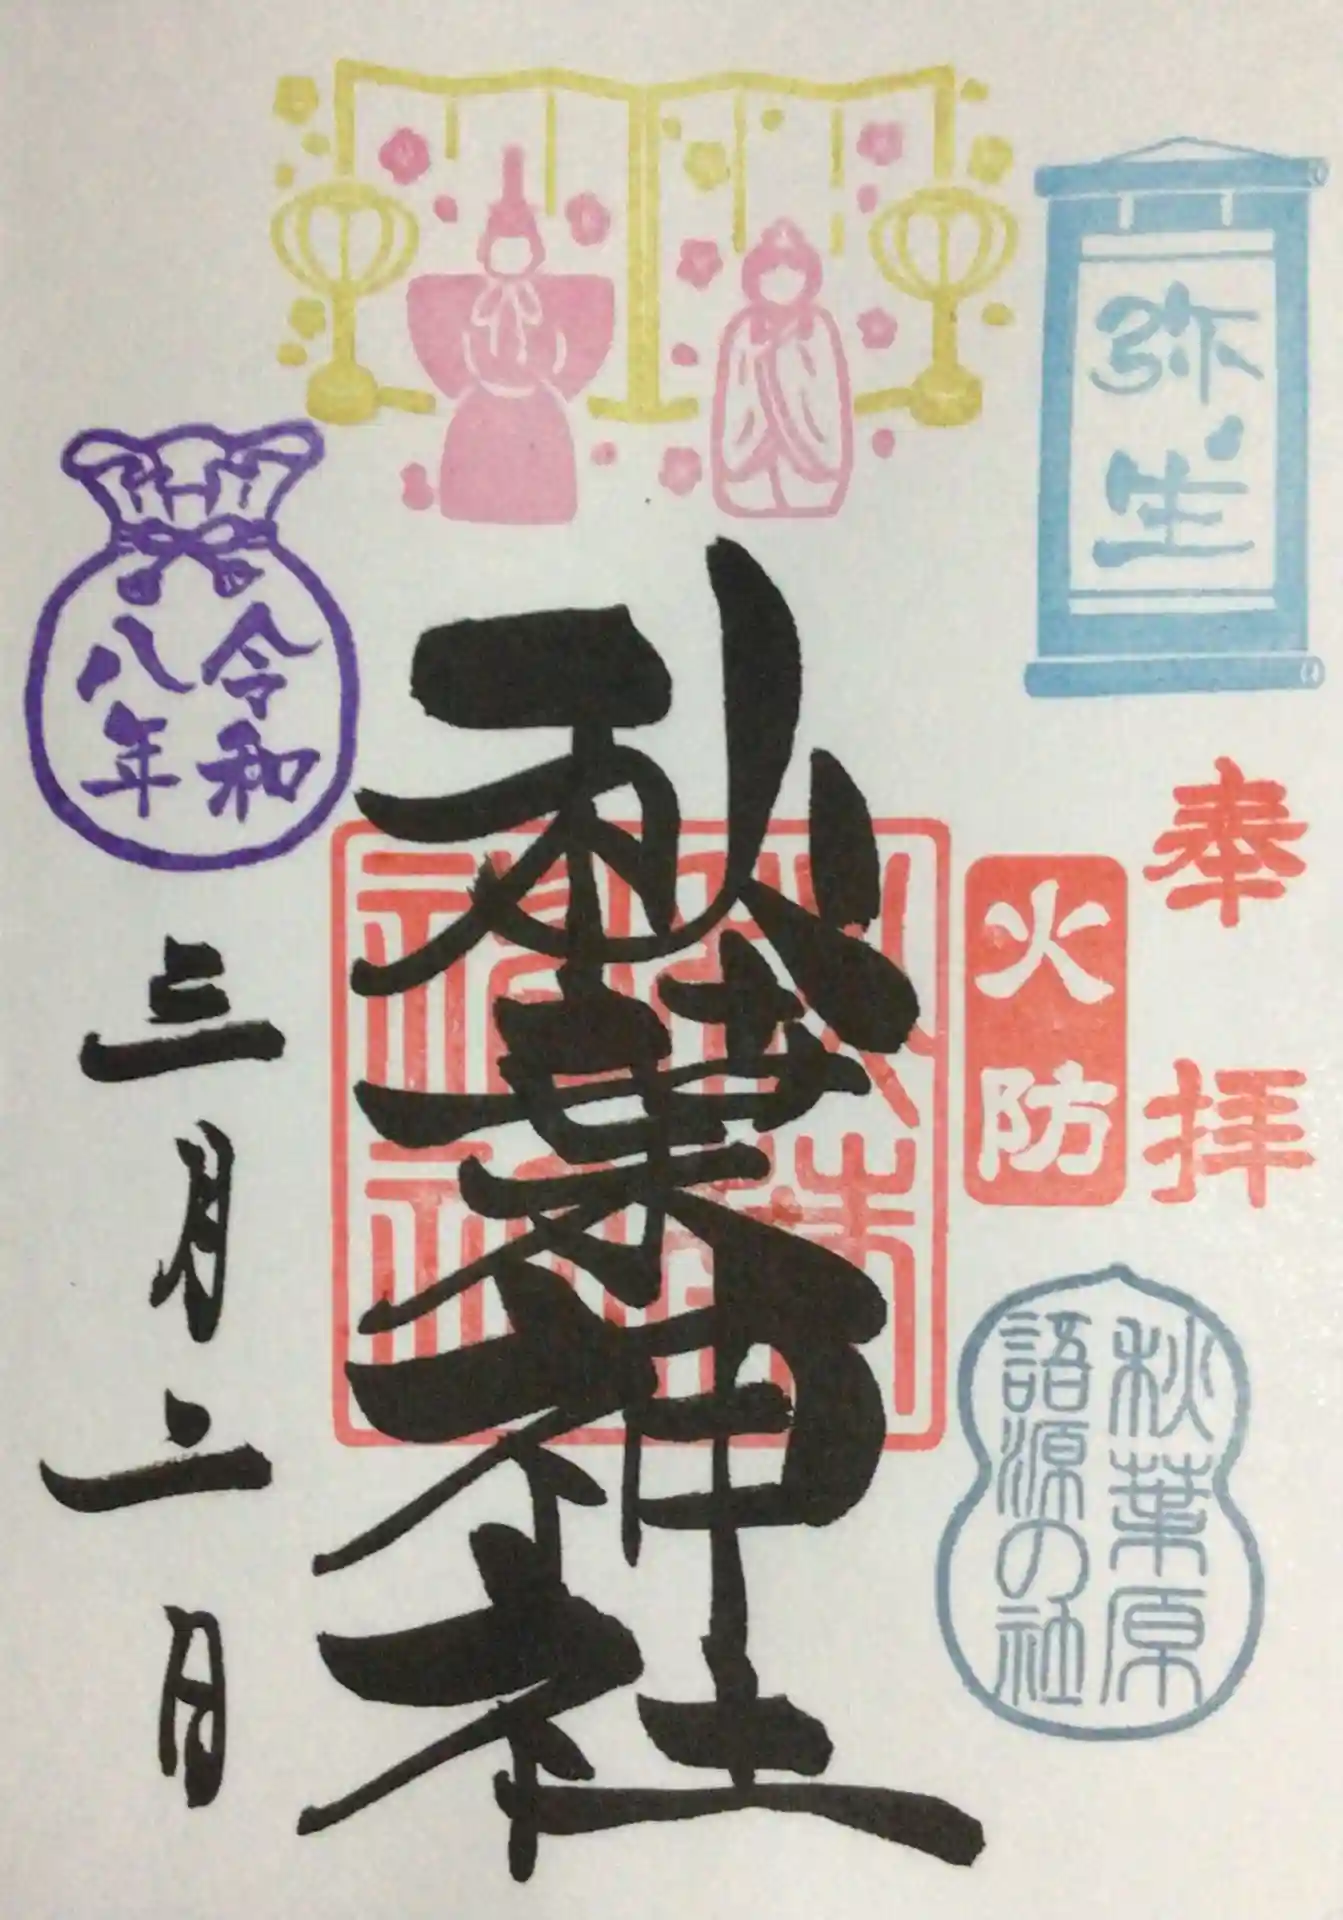 弥生
奉拝
火防
秋葉原
語源の社
秋葉神社
令和
八年
三月二日